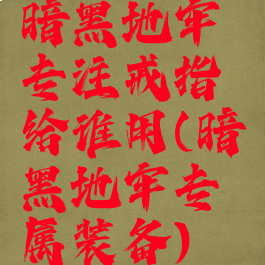 暗黑地牢
专注戒指
给谁用(暗
黑地牢专
属装备)